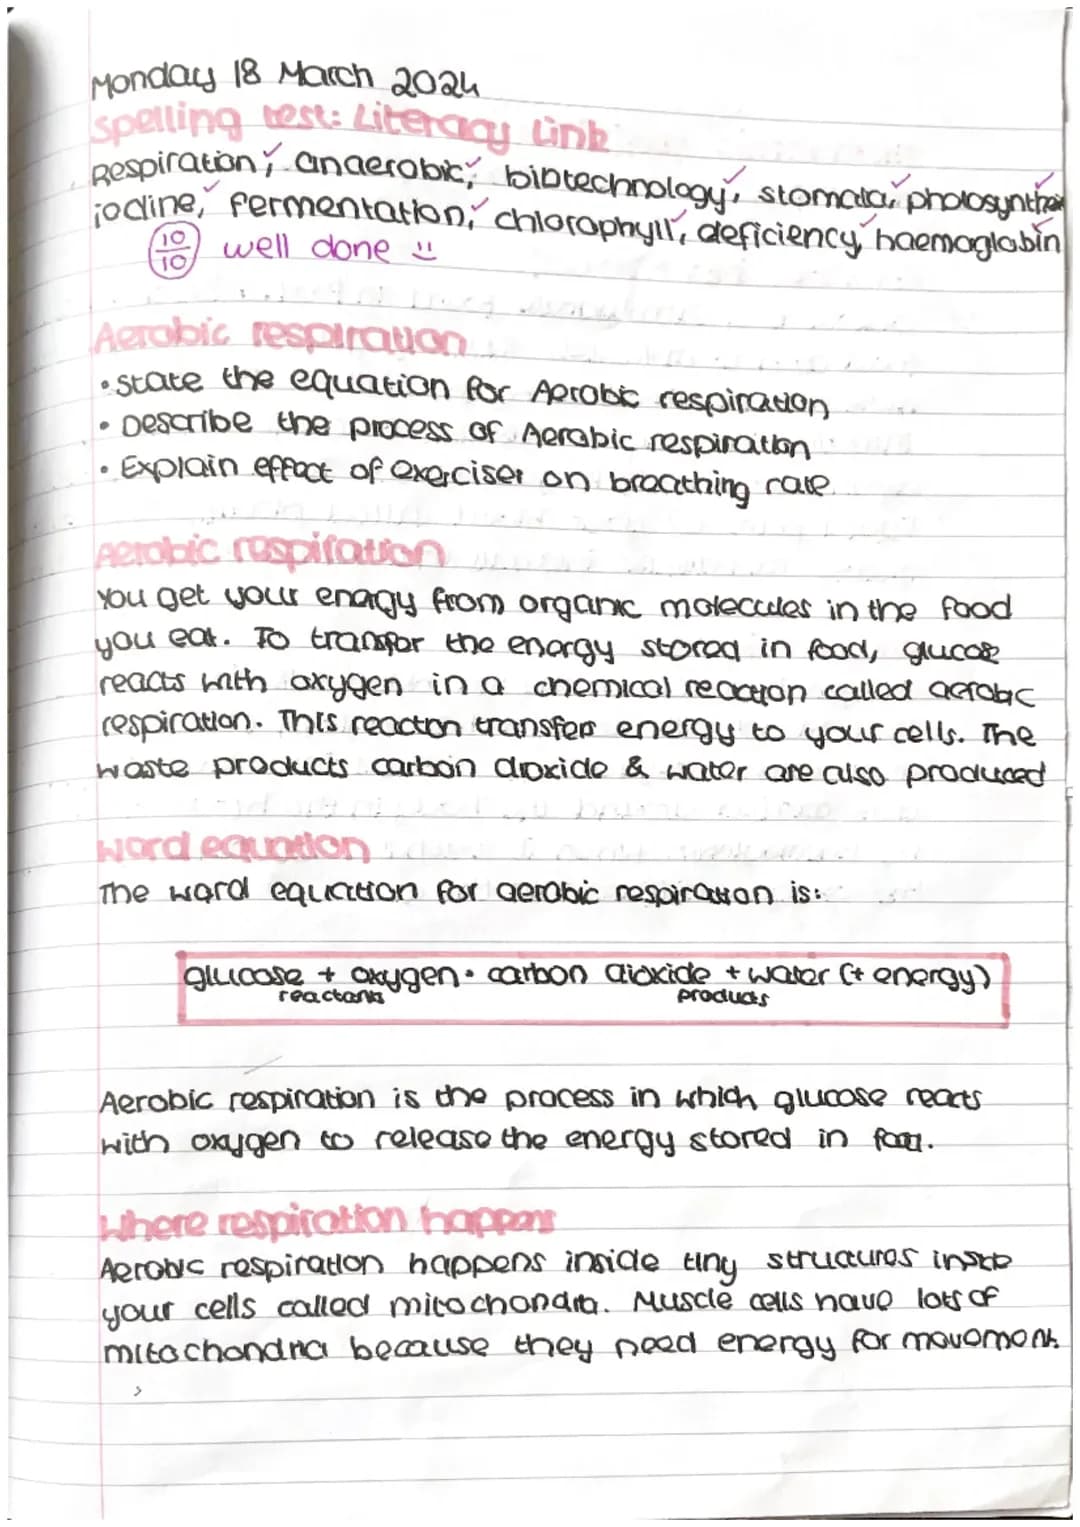 Monday 18 March 2024
Spelling test: Literacy link
Respiration, anaerobic, biotechnology, stomata, photosynthesis
iodine, fermentation, chlorophyll, deficiency, haemoglobin
10/10 well done
Aerobic respiration
• state the equation for Aerobic respiration
• Describe the process of Aerobic respiration
• Explain effect of exerciser on breathing rate.
Aerobic respiration
You get your enagy from organic molecules in the food
you eat. To transfer the energy stored in food, glucose
reacts with oxygen in a chemical reaction called aerobic
respiration. This reaction transfers energy to your cells. The
waste products carbon dioxide & water are also produced
word equation
The word equation for aerobic respiration is:
glucose + oxygen • carbon dioxide + water (+ energy)
reactants products
Aerobic respiration is the process in which glucose reacts
with oxygen to release the energy stored in food.
Where respiration happens
Aerobic respiration happens inside tiny structures inside
your cells called mitochondria. Muscle cells have lots of
mitochondria because they need energy for movement.